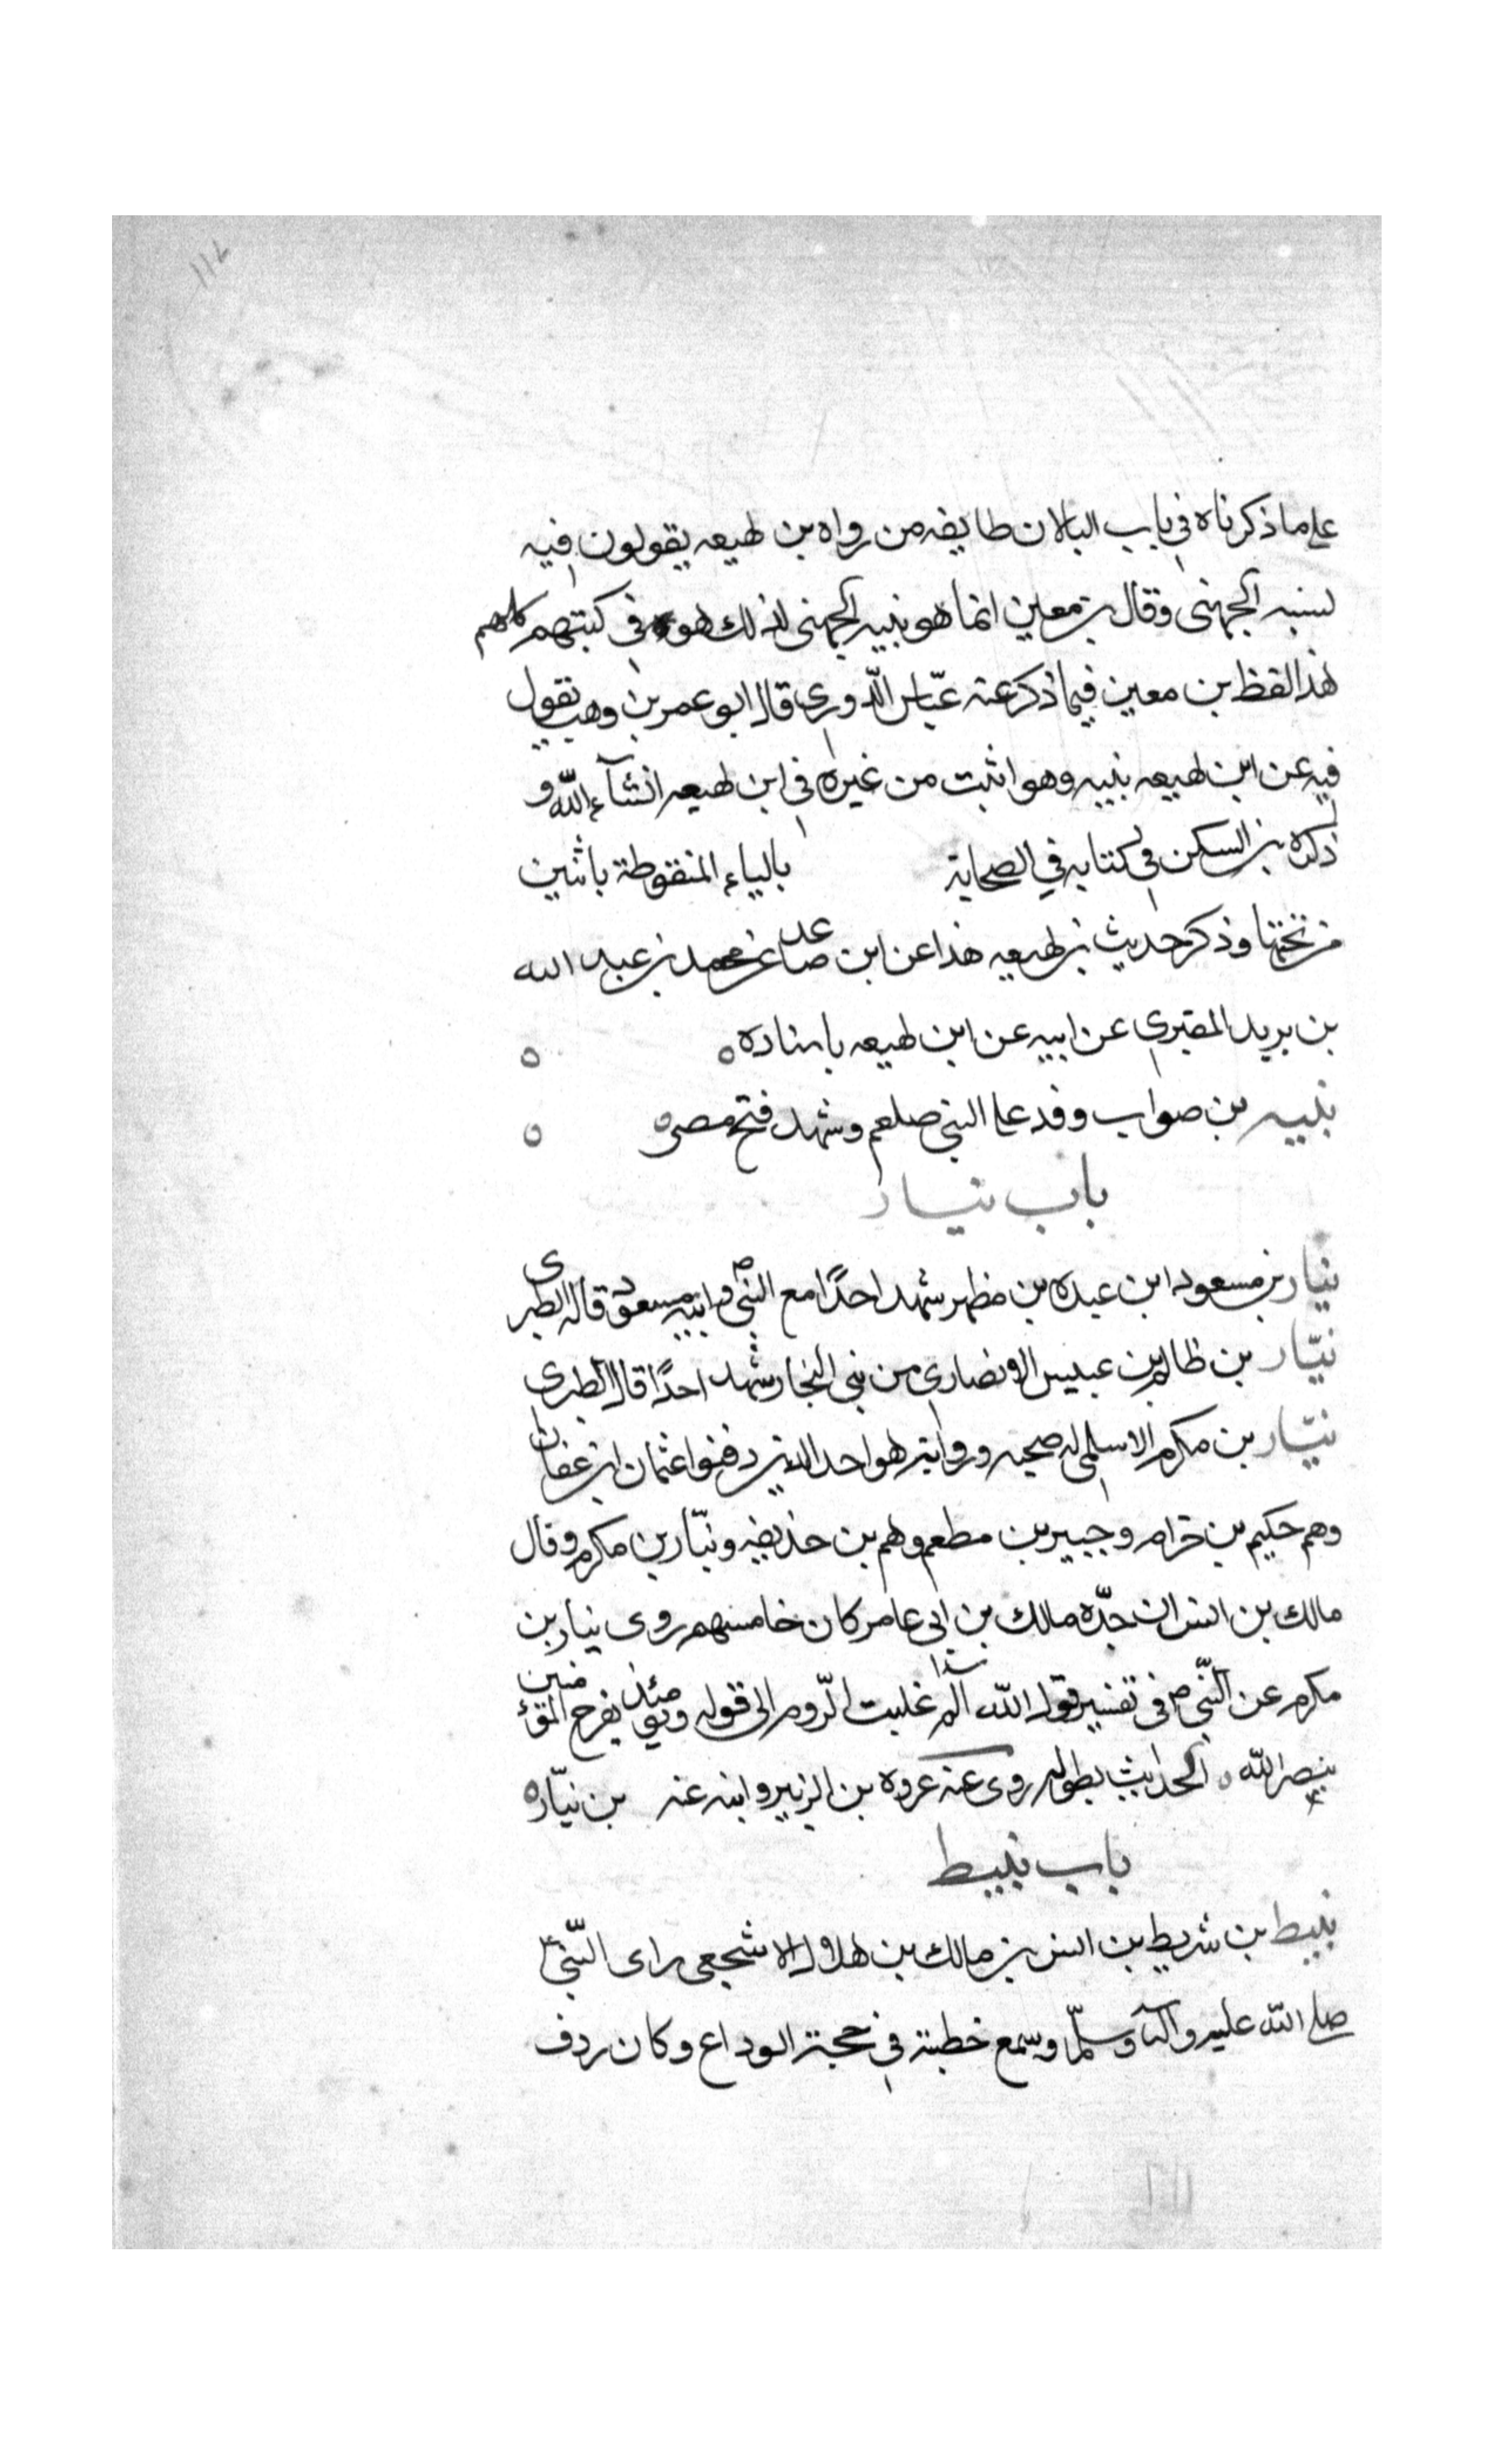 على ما ذكرناه في باب البا لان طايفه من رواه بن لهيعه يقولون فيه
لسنبه الجهنى وقال بن معين انما هو نبيه الجهنى لذلك هو في كتبهم كلهم
هذا لفظ بن معين فيما ذكر عنه عبّاس الدّورى قال ابو عمر بن وهب يقول
فيه عن ابن لهيعه نبيه وهو اثبت من غيره في ابن لهيعه انشآء اللّه و
ذكره بن السكن في كتابه في الصحابة بالياء المنقوطة باثنين
من تحتها وذكر حديث بن لهيعه هذا عن ابن صاعد عن محمد بن عبد الله
بن يريد المقبرى عن ابيه عن ابن لهيعه باسناده
نبيه بن صواب وفد على النبي صلعم وشهد فتح مصر
باب نيار
نيار بن مسعود ابن عبده بن مظهر شهد احدًا مع النبي ص وابنه مسعود قاله الطبرى
نيّار بن ظالم بن عبيس الانصارى من بنى النجار شهد احدًا قال الطبرى
نيّار بن مكرم الاسلمى له صحبه وروايته هو احد الذين دفنوا عثمان ابن عفان
وهم حكيم بن حزام وجبير بن مطعم وهم بن حذيفه ونيّار بن مكرم وقال
مالك بن انس ان جدّه مالك بن ابي عامر كان خامسهم روى نيار بن
مكرم عن النّبي ص في تفسير قول اللّه الٓم غلبت الرّوم الى قوله ويومئذ يفرح المؤمنين
بنصر اللّه الحديث بطوله روى عنه عروه بن الزبير وابنه عنه بن نيّار
باب نبيط
نبيط بن شريط بن انس بن مالك بن هلال الاشجعى راى النّبي
صلى اللّه عليه وآله وسلّم وسمع خطبته في حجة الوداع وكان ردف